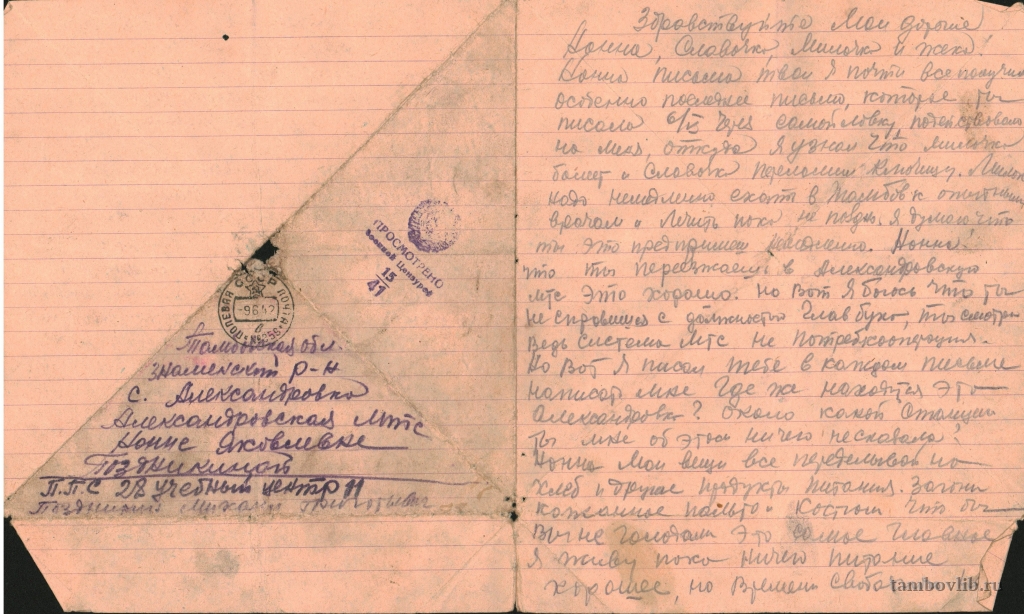 ПРОСМОТРЕНО
Военной Цензурой
15
41
ПОЛЕВАЯ ПОЧТА
-9642
Тамбовская обл.
Знаменский р-н
с. Александровка
Александровская Мтс
Нонне Яковлевне
Поздникиной
П.П.С 28 учебный центр 11
Михаил Григорьевич
Здравствуйте Мои дорогие
Нонна, Славочка, Милочка и Жека!
Нонна письма твои я почти все получил
особенно последнее письмо, которое ты
писала 6/V через самойловку
на меня, откуда я узнал что милочка
болеет и Славочка переломил ключицу.
надо немедленно ехать в Тамбов к опытным
врачам и лечить пока не поздно. я думаю что
ты это предпримешь немедленно. Нонна!
что ты переезжаешь в Александровскую
мтс это хорошо. но вот я боюсь что ты
не справишся с должностью Главбуха, ты смотри
ведь система Мтс не потребкооперация.
Но вот я писал тебе в каждом письме
написать мне где же находится это
Александровка? около какой станции
ты мне об этом ничего не сказала!
Нонна мои вещи все переделывай на
хлеб и другие продукты питания. Загони
кожанное пальто и костюм что бы
вы не голодали это самое главное
я живу пока ничего питание
хорошее, но времени
tambovlib.ru